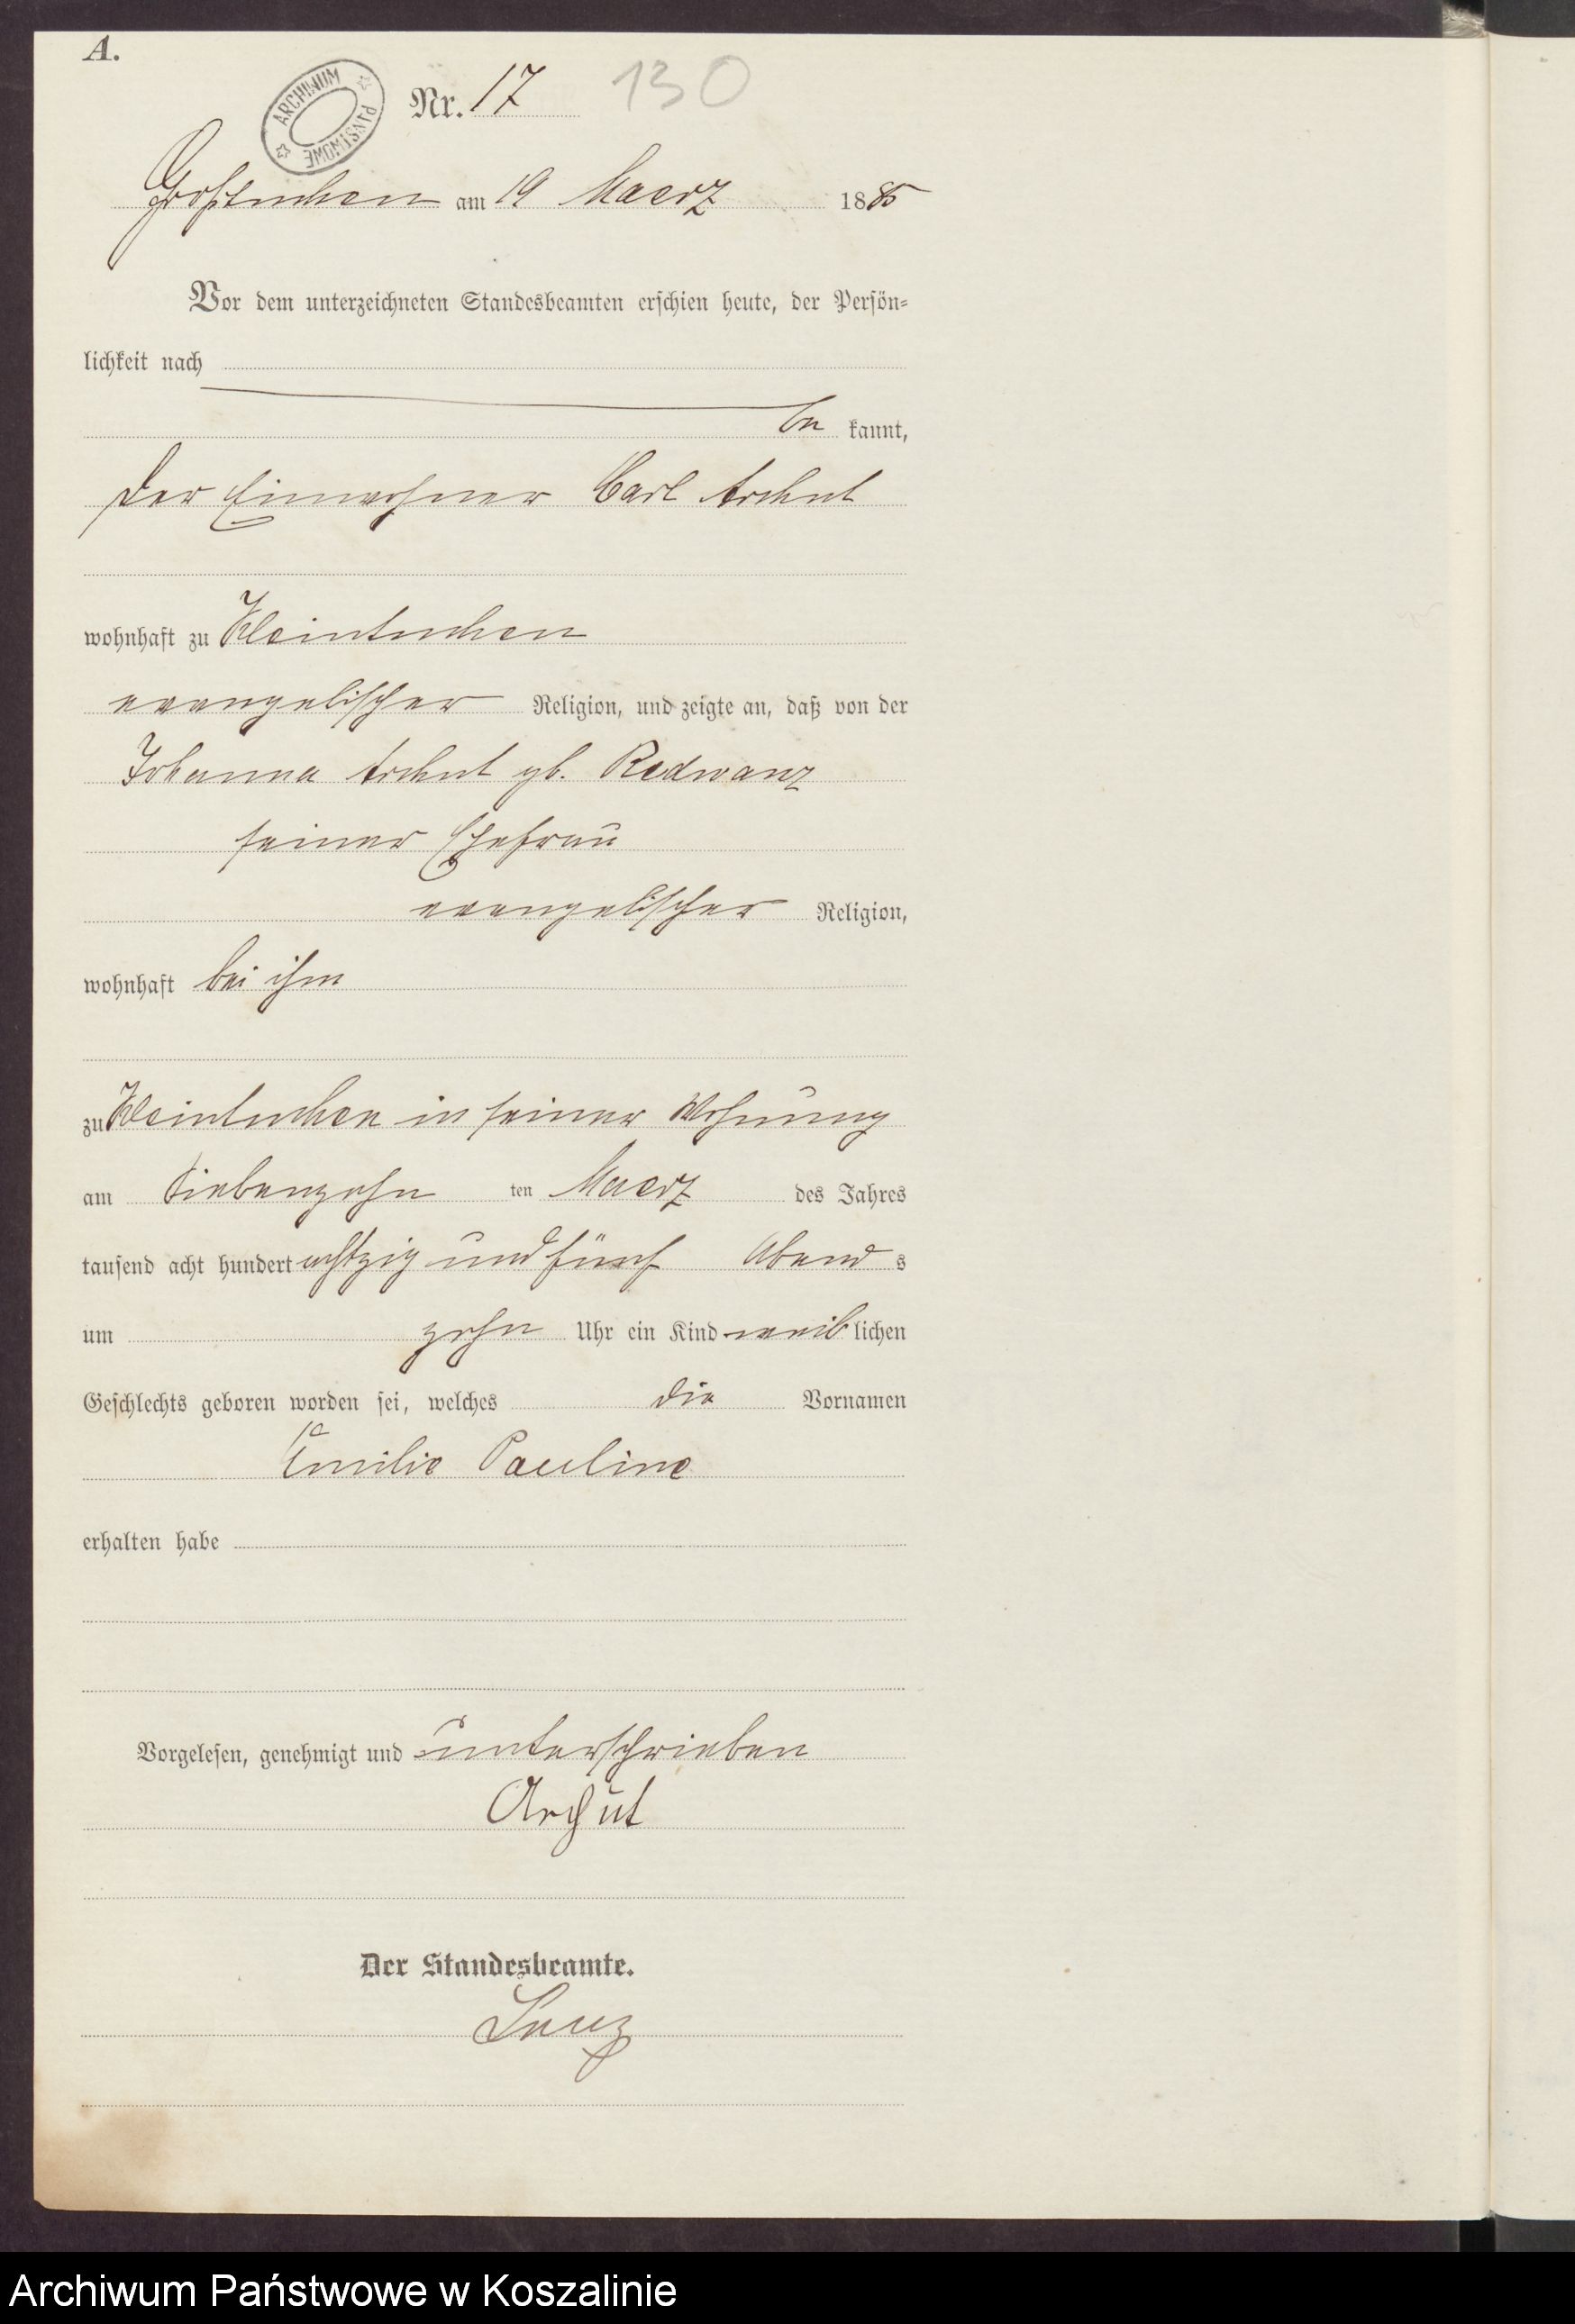 A.
ARCHIWUM PAŃSTWOWE
Nr. 17 130
Großtuchen am 19 Maerz 1885
Vor dem unterzeichneten Standesbeamten erschien heute, der Persön-
lichkeit nach
be kannt,
der Einwohner Carl Archut
wohnhaft zu Kleintuchen
evangelischer Religion, und zeigte an, daß von der
Johanna Archut gb. Redwanz
seiner Ehefrau
evangelischer Religion,
wohnhaft bei ihm
zu Kleintuchen in seiner Wohnung
am Siebenzehn ten Maerz des Jahres
tausend acht hundert achtzig und fünf Abend s
um zehn Uhr ein Kind weib lichen
Geschlechts geboren worden sei, welches die Vornamen
Emilie Pauline
erhalten habe
Vorgelesen, genehmigt und unterschrieben
Archut
Der Standesbeamte.
Archiwum Państwowe w Koszalinie